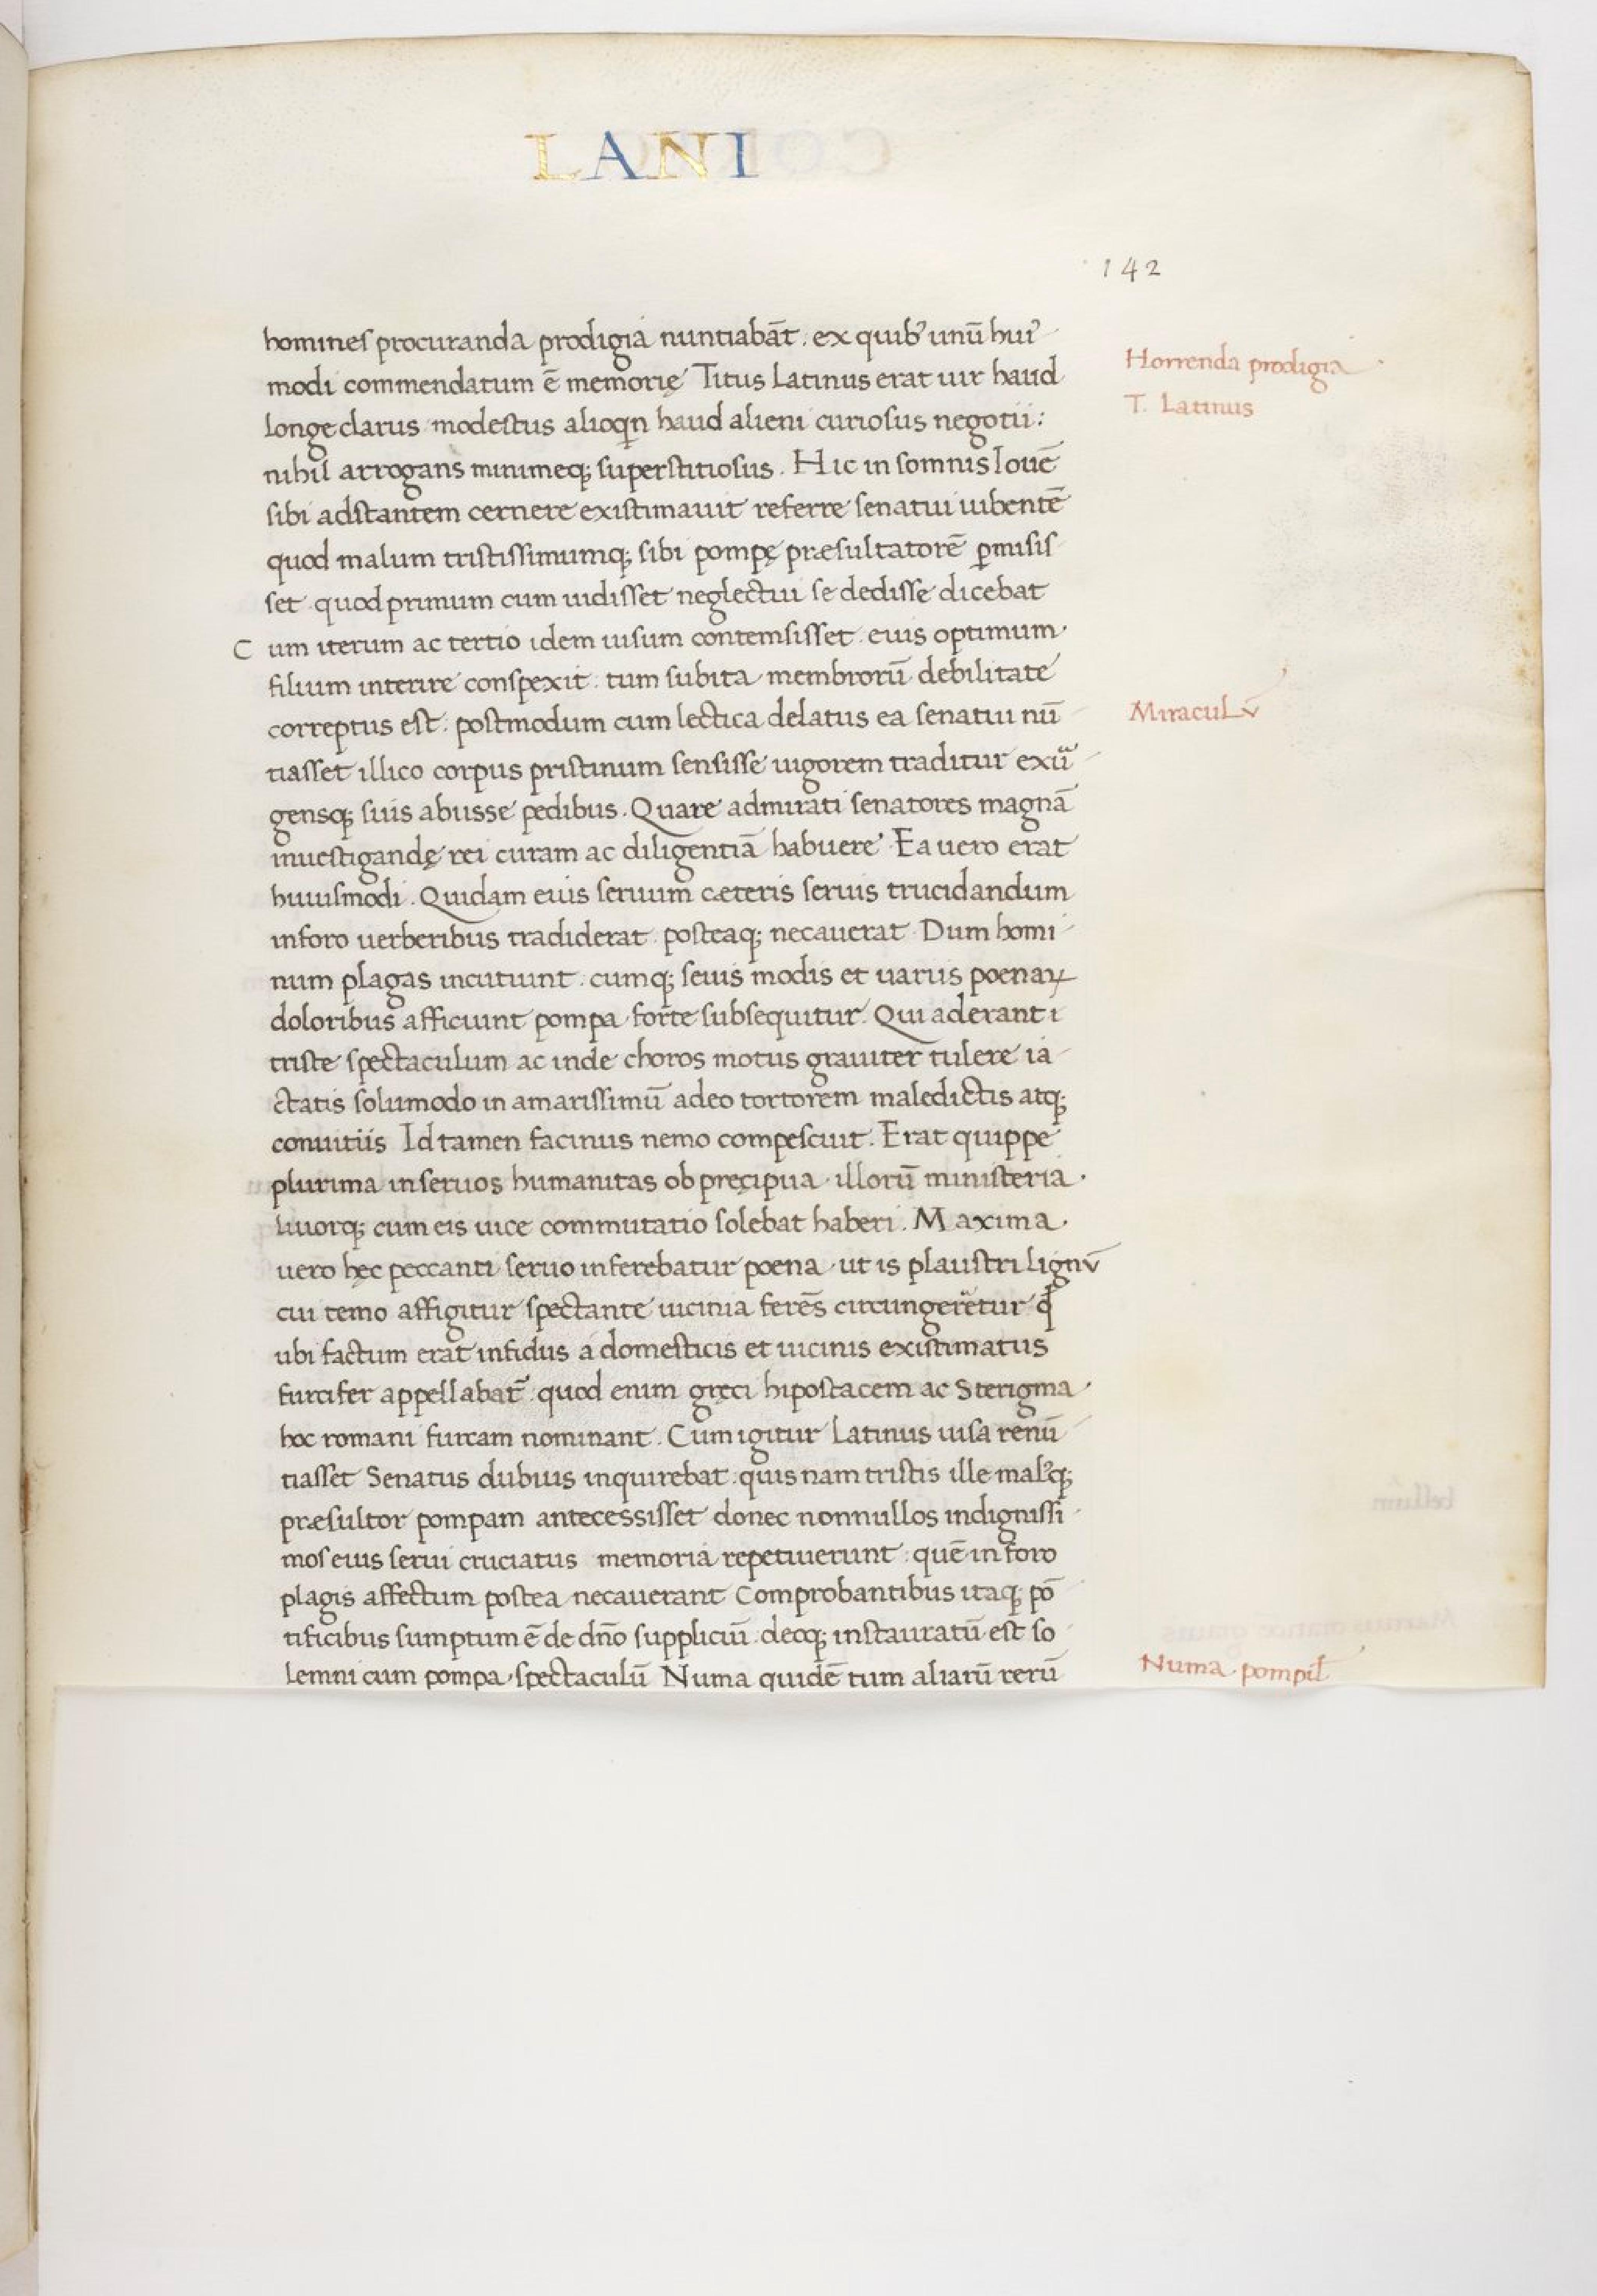 LANI
142
homines procuranda prodigia nuntiabāt. ex quib' unū hui'
Horrenda prodigia
modi commendatum ē memorię Titus Latinus erat uir haud
T. Latinus
longe clarus modestus alioqn haud alieni curiosus negotii:
nihil arrogans minimeq; superstitiosus. Hic in somnis Iouē
sibi adstantem cernere existimauit referre senatui iubentē
quod malum tristissimumq; sibi pompę præsultatorē pmisis
set quod primum cum uidisset neglectui se dedisse dicebat
Cum iterum ac tertio idem uisum contemsisset. euis optimum
filium interire conspexit. tum subita membrorū debilitate
correptus est: postmodum cum lectica delatus ea senatui nū
Miraculū
tiasset illico corpus pristinum sensisse uigorem traditur exu
gensq; suis abiisse pedibus. Quare admirati senatores magnā
inuestigandę rei curam ac diligentiā habuere Ea uero erat
huiusmodi. Quidam euis seruum cæteris seruis trucidandum
in foro uerberibus tradiderat posteaq; necauerat Dum homi
num plagas incutiunt. cumq; seuis modis et uariis poenaꝝ
doloribus afficiunt pompa forte subsequitur. Qui aderant i
triste spectaculum ac inde choros motus grauiter tulere ia
ctatis solumodo in amarissimū adeo tortorem maledictis atq;
conuitiis Id tamen facinus nemo compescuit. Erat quippe
plurima in seruos humanitas ob pręcipua illorū ministeria.
liuorq; cum eis uice commutatio solebat haberi. Maxima
uero hęc peccanti seruo inferebatur poena ut is plaustri lignū
cui temo affigitur spectante uicinia ferēs circungeretur q
ubi factum erat infidus a domesticis et uicinis existimatus
furcifer appellabat̄. quod enim gręci hipostacem ac Sterigma
hoc romani furcam nominant. Cum igitur Latinus uisa renū
tiasset Senatus dubius inquirebat. quis nam tristis ille mal'q;
præsultor pompam antecessisset donec nonnullos indignissi
mos eius serui cruciatus memoria repetiuerunt: quē in foro
plagis affectum postea necauerant Comprobantibus itaq; pō
tificibus sumptum ē de dño suppliciū. deoq; instauratū est so
lemni cum pompa spectaculū Numa quidē tum aliarū rerū
Numa pompil